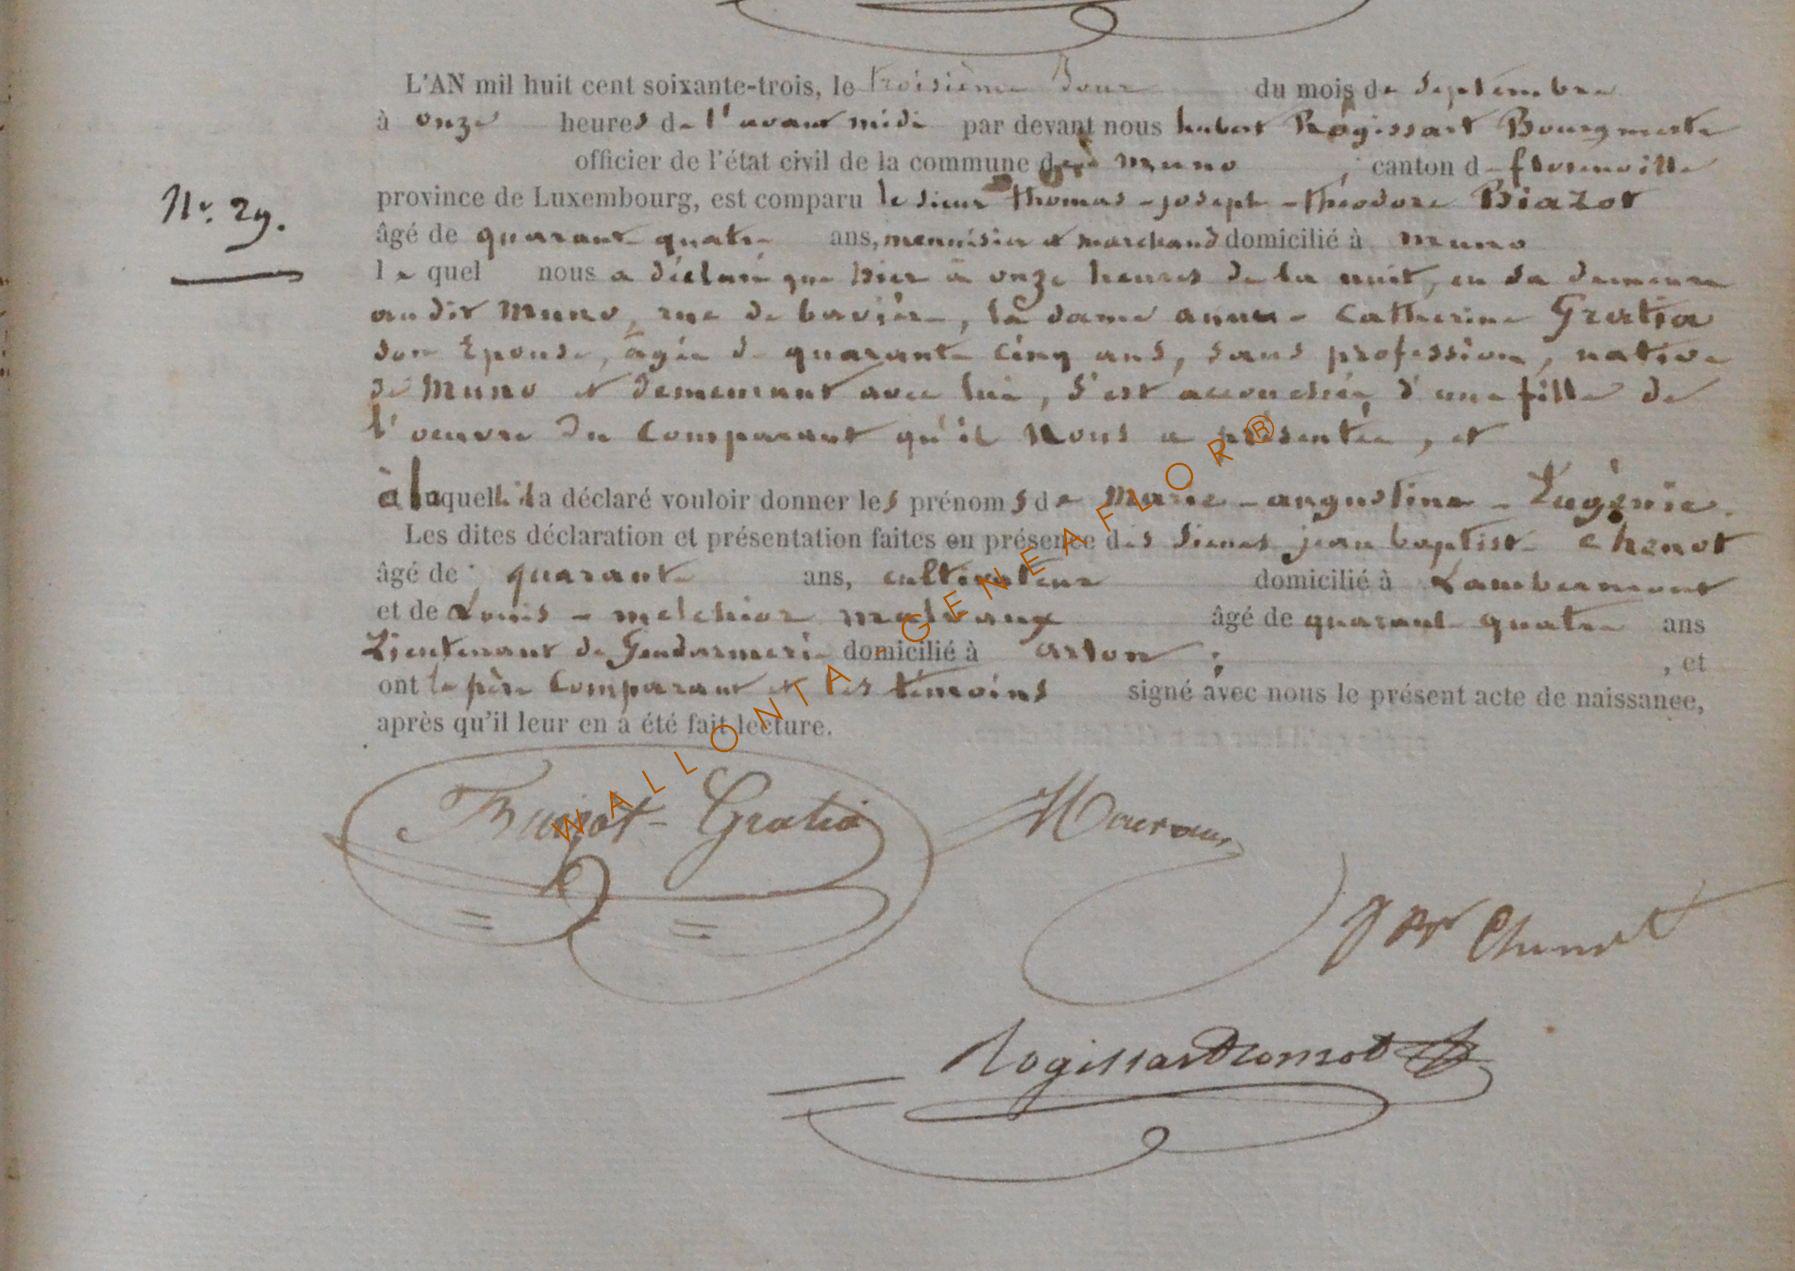 L'AN mil huit cent soixante-trois, le troisième Jour du mois de Septembre
à onze heures de l'avant midi par devant nous hubert Rogissart Bourgmestre
officier de l'état civil de la commune de Muno, canton de florenville
Nr. 29.
province de Luxembourg, est comparu le sieur thomas-joseph-théodore Biazot
âgé de quarante quatre ans, mennisier et marchand domicilié à Muno
lequel nous a déclaré que hier à onze heures de la nuit, en sa demeure
audit Muno, rue de bavière, la dame anne-Catherine Gratia
son Epouse, âgée de quarante cinq ans, sans profession, native
de Muno et demeurant avec lui, s'est accouchée, d'une fille de
l'oeuvre du Comparant qu'il Nous a présentée, et
à laquelle il a déclaré vouloir donner les prénoms de Marie-augustine-Eugénie.
Les dites déclaration et présentation faites en présence des Sieurs jean baptiste Chenot
âgé de quarante ans, cultivateur domicilié à Lambermont
et de Louis-melchior âgé de quarante quatre ans
Lieutenant de Gendarmerie domicilié à arlon; , et
ont le père Comparant et les témoins signé avec nous le présent acte de naissance,
après qu'il leur en a été fait lecture.
Biazot-Gratia
JBt Chenot
Rogissart
WALLONTA - GENEAFLOR®